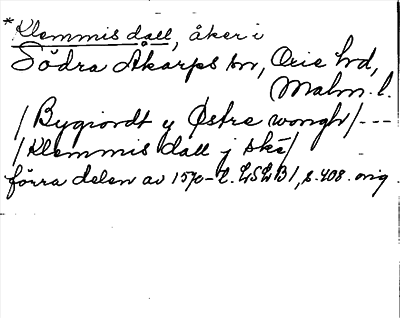 *Klemmis dall, åker i
Södra Åkarps sn, Oxie hd,
Malm. l.
/Bygiordt y Østre wongh/---
/Klemmis dall j skē/
förra delen av 1570-t. LSLB1, s. 408. orig